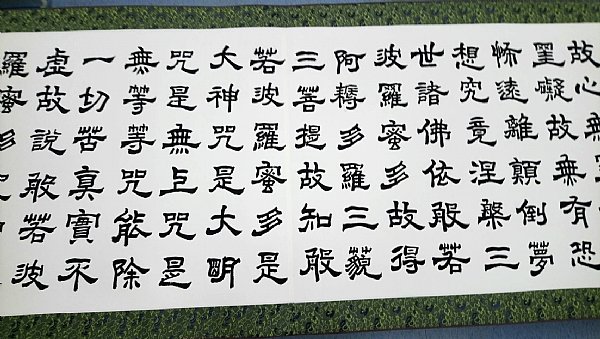 故心無
罣礙故無有恐
怖遠離顛倒夢
想究竟涅槃三
世諸佛依般若
波羅蜜多故得
阿耨多羅三藐
三菩提故知般
若波羅蜜多是
大神咒是大明
咒是無上咒是
無等等咒能除
一切苦真實不
虛故說般若波
羅蜜多